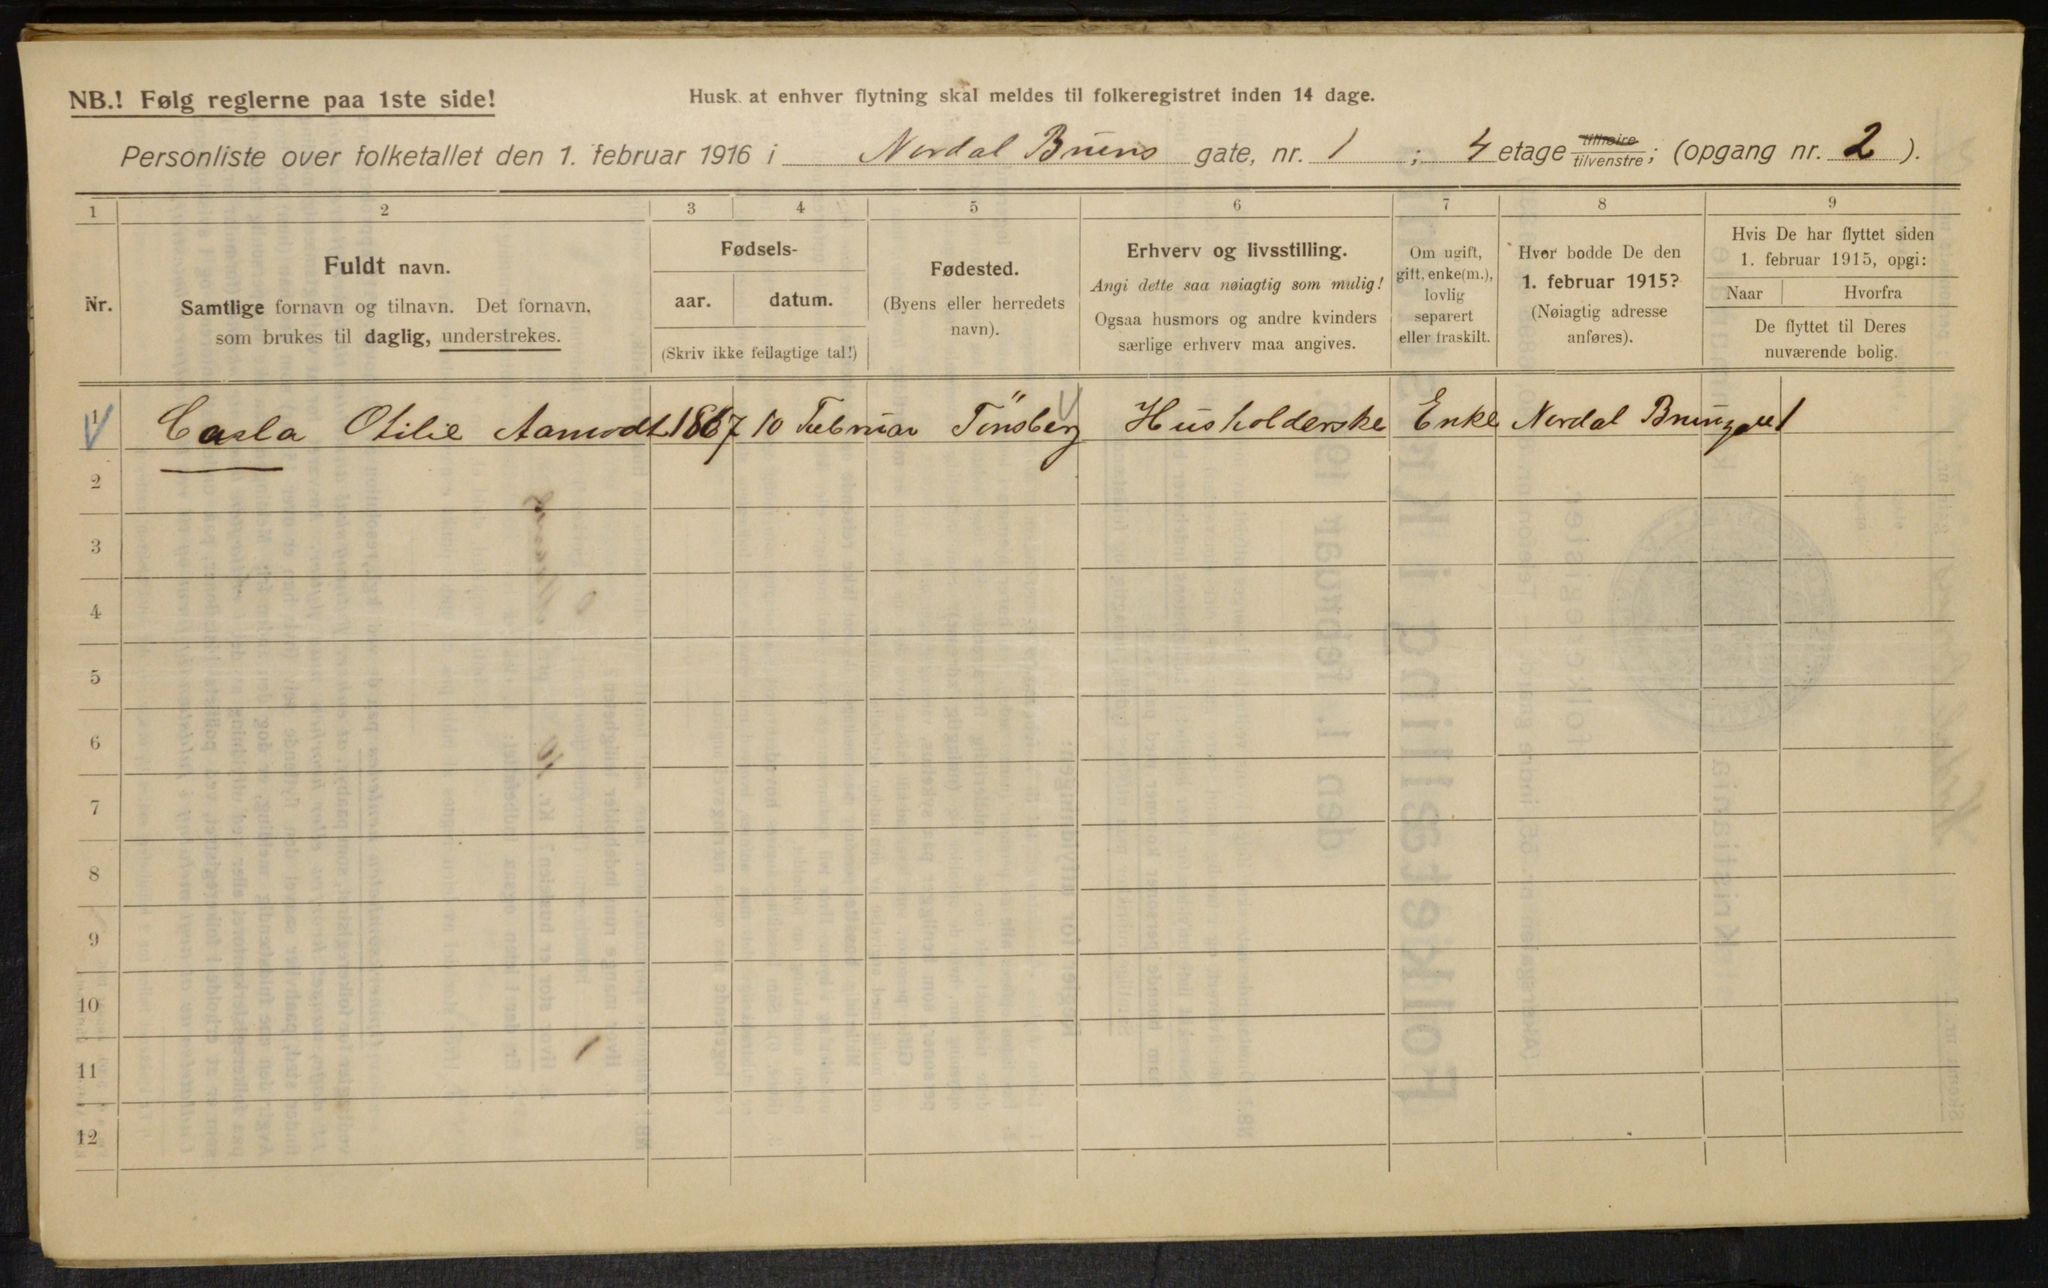 NB.! Følg reglerne paa 1ste side!
Husk at enhver flytning skal meldes til folkeregistret inden 14 dage.
Personliste over folketallet den 1. februar 1916 i Nordal Bruns gate, nr. 1 ; 4 etage tilhøire tilvenstre ; (opgang nr. 2 ).
1 2 3 4 5 6 7 8 9
Nr.
Fuldt navn.
Samtlige fornavn og tilnavn. Det fornavn,
som brukes til daglig, understrekes.
Fødsels-
aar. datum.
(Skriv ikke feilagtige tal!)
Fødested.
(Byens eller herredets
navn).
Erhverv og livsstilling.
Angi dette saa nøiagtig som mulig!
Ogsaa husmors og andre kvinders
særlige erhverv maa angives.
Om ugift,
gift, enke(m.),
lovlig
separert
eller fraskilt.
Hvor bodde De den
1. februar 1915?
(Nøiagtig adresse
anføres).
Hvis De har flyttet siden
1. februar 1915, opgi:
Naar Hvorfra
De flyttet til Deres
nuværende bolig.
1 Carla Otilie Aamodt 1867 10 Februar Tönsberg Husholderske Enke Nordal Brunsgt 1
2
3
4
5
6
7
8
9
10
11
12